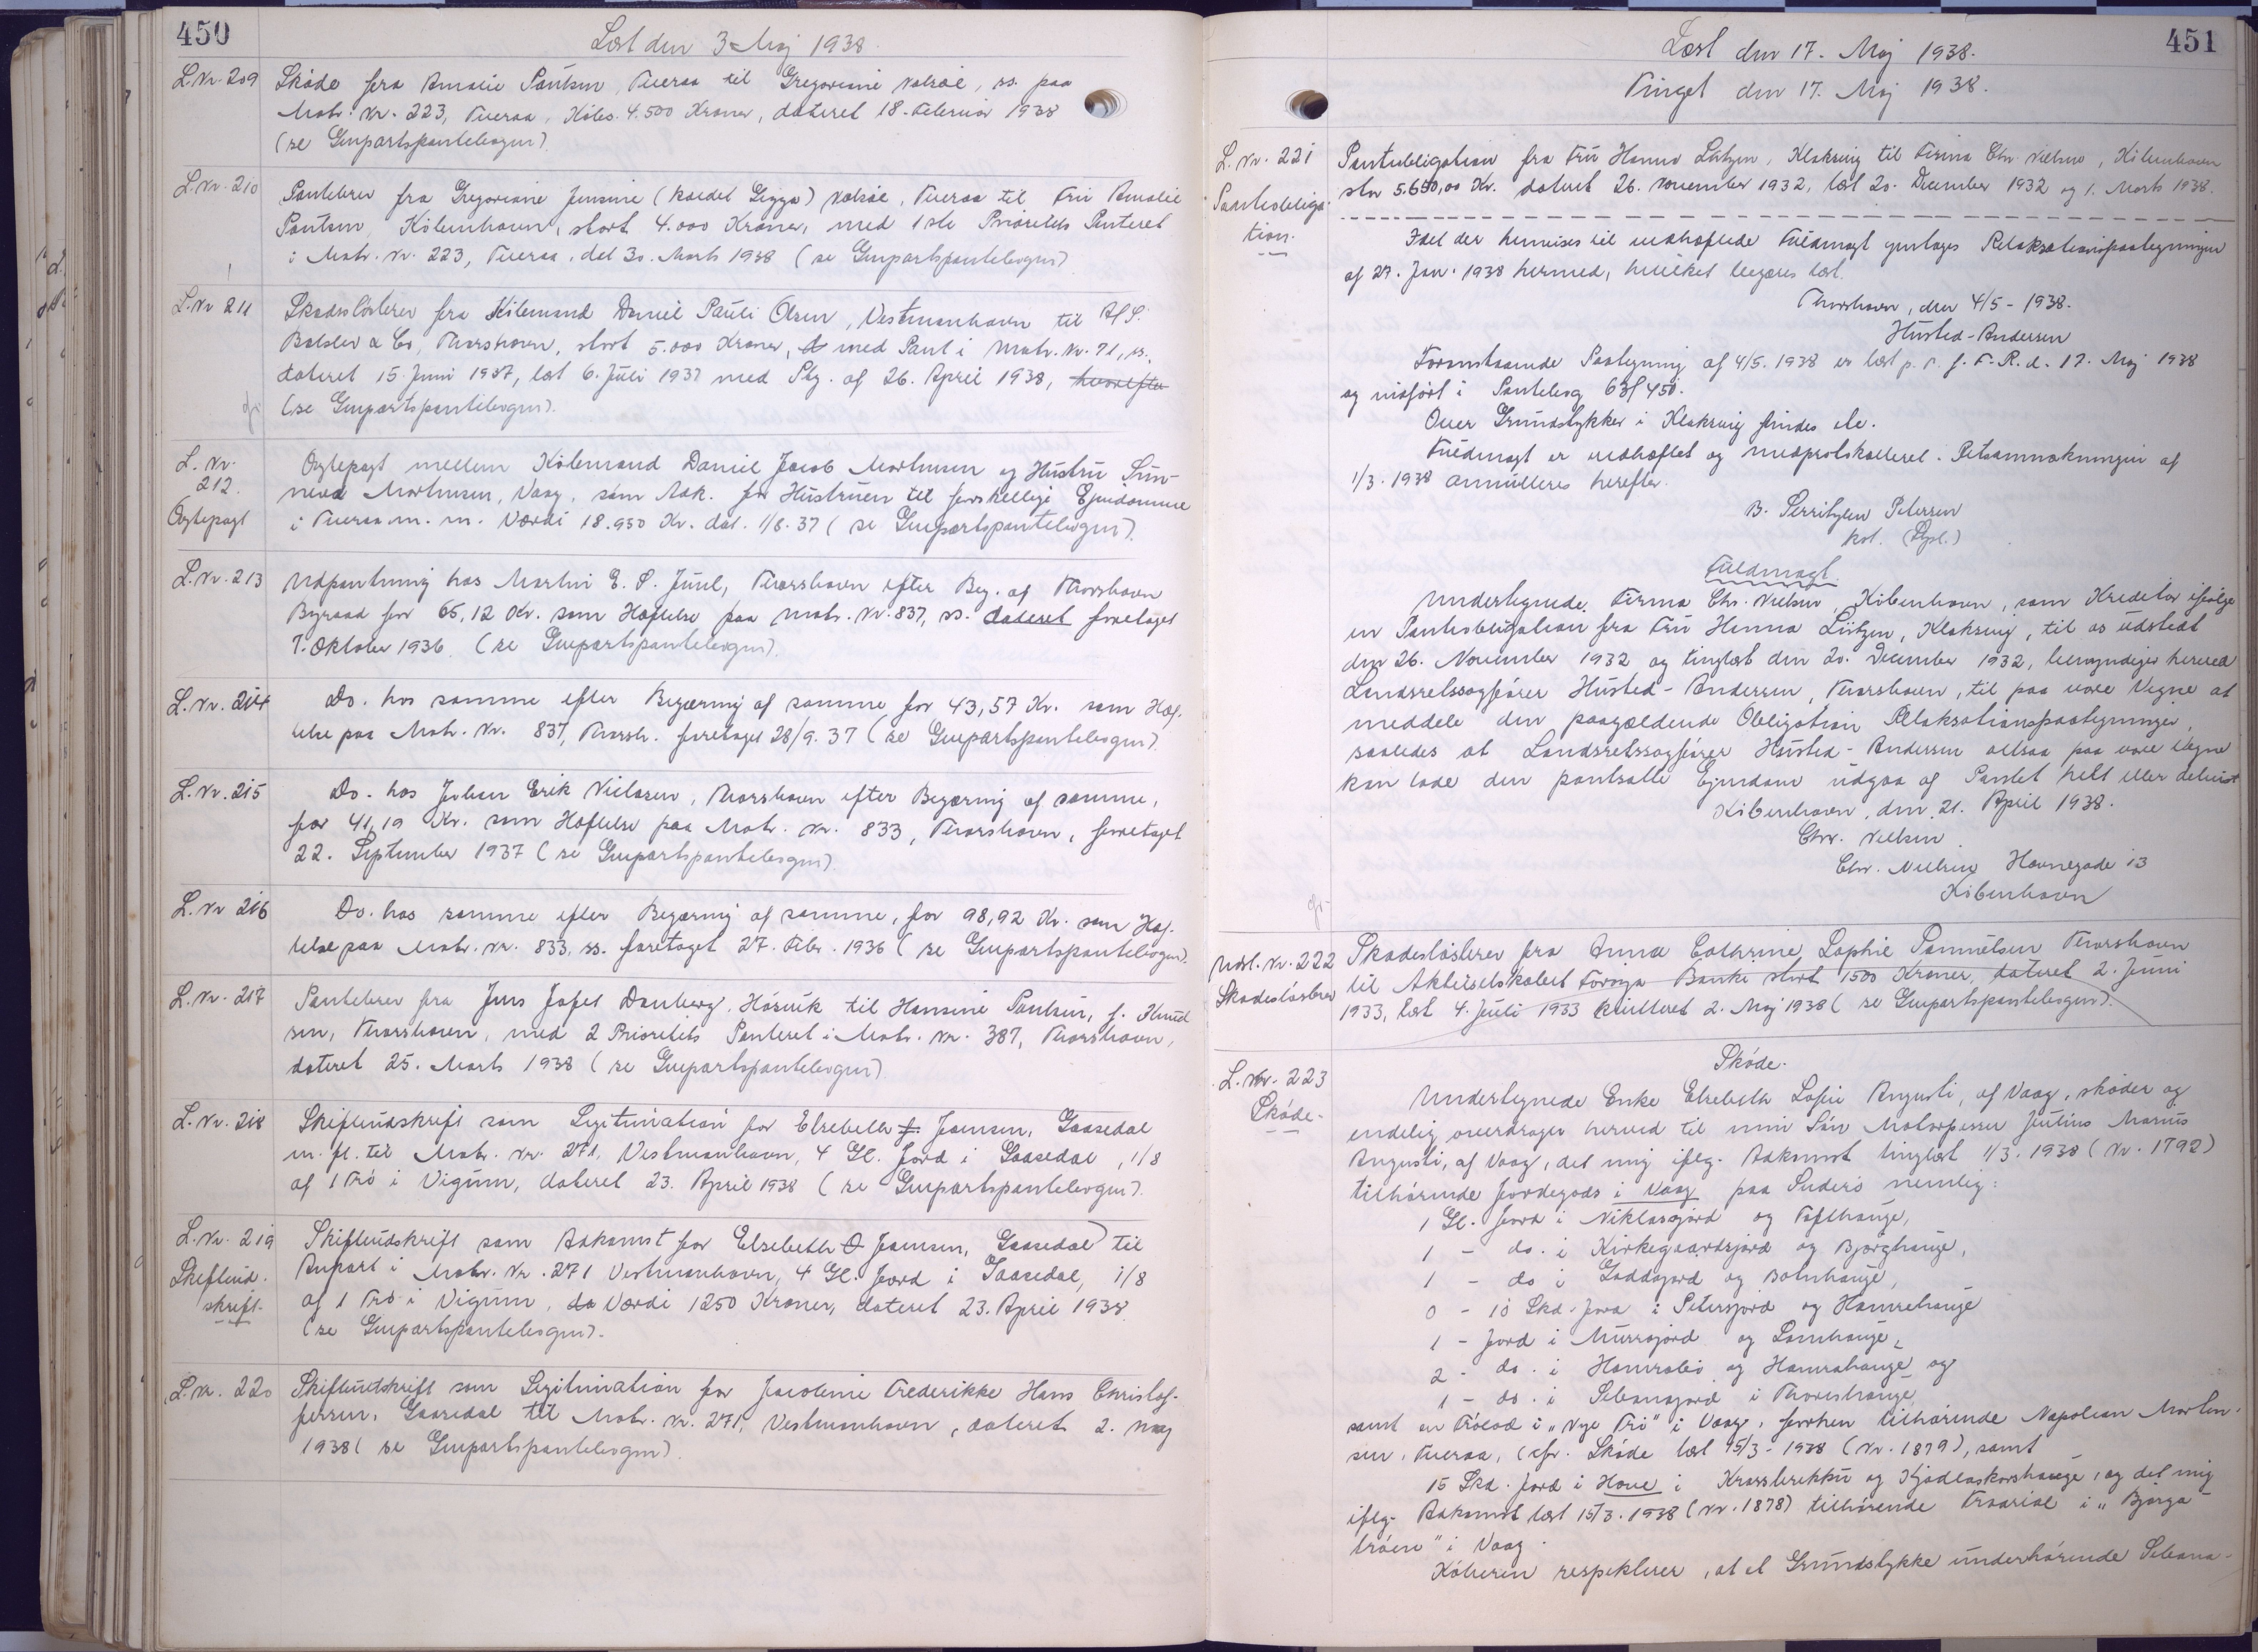 450
Læst den 3 Maj 1938.
L.Nr. 209
Skøde fra Amalie Paulsen, Tveraa til Gregoriane Valsøe, ss. paa
Matr. Nr. 223, Tveraa, Købes. 4.500 Kroner, dateret 18. Februar 1938
(se Genpartspantebogen).
L. Nr. 210
Pantebrev fra Gregoriane Jensine (kaldet Gigga) Valsøe, Tveraa til Fru Amalie
Paulsen, København, stort 4.000 Kroner, med 1ste Prioritets Panteret
i Matr. Nr. 223, Tveraa, dat 30. Marts 1938 (se Genpartspantebogen)
L. Nr 211
Skadesløsbrev fra Købmand Daniel Pauli Olsen, Vestmanhavn til A/S.
Balslev & Co, Thorshavn, stort 5.000 Kroner, med Pant i Matr. Nr. 71, ss.,
dateret 15. Juni 1937, læst 6. Juli 1937 med Ptg. af 26. April 1938, hvorefter
(se Genpartspantebogen).
L. Nr.
212.
Ægtepagt
Ægtepagt mellem Købmand Daniel Jacob Mortensen og Hustru Sun-
neva Mortensen, Vaag, som Adk. for Hustruen til forskellige Ejendomme
i Tveraa m. m. Værdi 18.950 Kr. dat. 1/6. 37 (se Genpartspantebogen).
L. Nr. 213
Udpantning hos Martin E. S. Juul, Thorshavn efter Beg. af Thorshavn
Byraad for 65,12 Kr. som Hæftelse paa Matr. Nr. 837, ss. dateret foretaget
7. Oktober 1936. (se Genpartspantebogen).
L. Nr. 214
Do. hos samme efter Begæring af samme for 43,57 Kr. som Hæf-
telse paa Matr. Nr. 837, Thorsh. foretaget 28/9. 37 (se Genpartspantebogen).
L. Nr. 215
Do. hos Johan Erik Nielsen, Thorshavn efter Begæring af samme,
for 41,19 Kr. som Hæftelse paa Matr. Nr. 833, Thorshavn, foretaget
22. September 1937 (se Genpartspantebogen).
L. Nr 216
Do. hos samme efter Begæring af samme, for 98,92 Kr. som Hæf-
telse paa Matr. Nr. 833, ss. foretaget 27. Febr. 1936 (se Genpartspantebogen).
L. Nr. 217
Pantebrev fra Jens Jafet Danberg, Hósvík til Hansine Paulsen, f. Knud
sen, Thorshavn, med 2 Prioritets Panteret i Matr. Nr. 387, Thorshavn,
dateret 25. Marts 1938 (se Genpartspantebogen)
L. Nr. 218
Skifteudskrift som Legitimation for Elsebeth J. Joensen, Gaasedal
m. fl. til Matr. Nr. 271, Vestmanhavn, 4 Gl. Jord i Gaasedal, 1/8
af 1 Trø i Vigum, dateret 23. April 1938 (se Genpartspantebogen).
L. Nr. 219
Skifteud-
skrift.
Skifteudskrift som Adkomst for Elsebeth O Joensen, Gaasedal til
Anpart i Matr. Nr. 271 Vestmanhavn, 4 Gl. Jord i Gaasedal, 1/8
af 1 Trø i Vigum, Værdi 1250 Kroner, dateret 23. April 1938.
(se Genpartspantebogen).
L. Nr. 220
Skifteudskrift som Legitimation for Jacobine Frederikke Hans Christof-
fersen, Gaasedal til Matr. Nr. 271, Vestmanhavn, dateret 2. Maj
1938 (se Genpartspantebogen).
451
Læst den 17. Maj 1938.
Tinget den 17. Maj 1938.
L. Nr. 221
Pantobliga-
tion.
Pantobligation fra Fru Hanna Lützen, Klaksvig til Firma Chr. Nielsen, København
stor 5.650,00 Kr. dateret 26. November 1932, læst 20. December 1932 og 1. Marts 1938.
Idet der henvises til vedhæftede Fuldmagt gentages Relaksationspaategningen
af 27. Jan. 1938 hermed, hvilket begæres læst.
Thorshavn, den 4/5 - 1938.
Husted-Andersen
Foranstaaende Paategning af 4/5. 1938 er læst p. v. f. F. R. d. 17. Maj 1938
og indført i Pantebog 63/450.
Over Grundstykker i Klaksvig findes etc.
Fuldmagt er vedhæftet og medprotokolleret. Retsanmærkningen af
1/3. 1938 annulleres herefter.
B. Serritzlew Petersen
kst. (Lpl.)
Fuldmagt.
Undertegnede Firma Chr. Nielsen, København, som Kreditor ifølge
en Pantobligation fra Fru Hanna Lützen, Klaksvig, til os udstedt
den 26. November 1932 og tinglæst den 20. December 1932, bemyndiger herved
Landsretssagfører Husted-Andersen, Thorshavn, til paa vore Vegne at
meddele den paagældende Obligation Relaksationspaategninger,
saaledes at Landsretssagfører Husted-Andersen altsaa paa vore Vegne
kan lade den pantsatte Ejendom udgaa af Pantet helt eller delvist
København, den 21. April 1938.
Chr. Nielsen
Chr. Nielsen Havnegade 13
København
Udsl. Nr. 222
Skadesløsbrev
Skadesløsbrev fra Anna Cathrine Sophie Samuelsen Thorshavn
til Aktieselskabet Føroya Banke stort 1500 Kroner, dateret 2. Juni
1933, læst 4. Juli 1933 kvitteret 2. Maj 1938 (se Genpartspantebogen).
L. Nr. 223
Skøde.
Skøde.
Undertegnede Enke Elsebeth Sofie Augusti, af Vaag, skøder og
endelig overdrager herved til min Søn Motorpasser Jentius Marius
Augusti, af Vaag, det mig iflg. Adkomst tinglæst 1/3. 1938 (Nr. 1792)
tilhørende Jordegods i Vaag paa Suderø nemlig:
1 Gl. Jord i Niklasgjord og Tofthauge,
1 - do. i Kirkegaardsjord og Bjarghauge,
1 - do i Gaddagord og Botnhauge,
0 - 10 Skd. Jord i Petersjord og Hamrehauge
1 - Jord i Murrsjord og Lamhauge,
2 - do. i Hamrabø og Hamrahauge og
1 - do. i Sebansjord i Thoreshauge
samt en Trølod i "Nye Trø" i Vaag, forhen tilhørende Napolian Morten-
sen, Tveraa, (cfr. Skøde læst 15/3 - 1938 (Nr. 1879), samt
15 Skd. Jord i Hove i Krossbrekku og Kjadlaskorshauge, og det mig
iflg. Adkomst læst 15/3. 1938 (Nr. 1878) tilhørende Trøareal i "Bjarga-
trøen" i Vaag.
Køberen respekterer, at et Grundstykke underhørende Sebans-